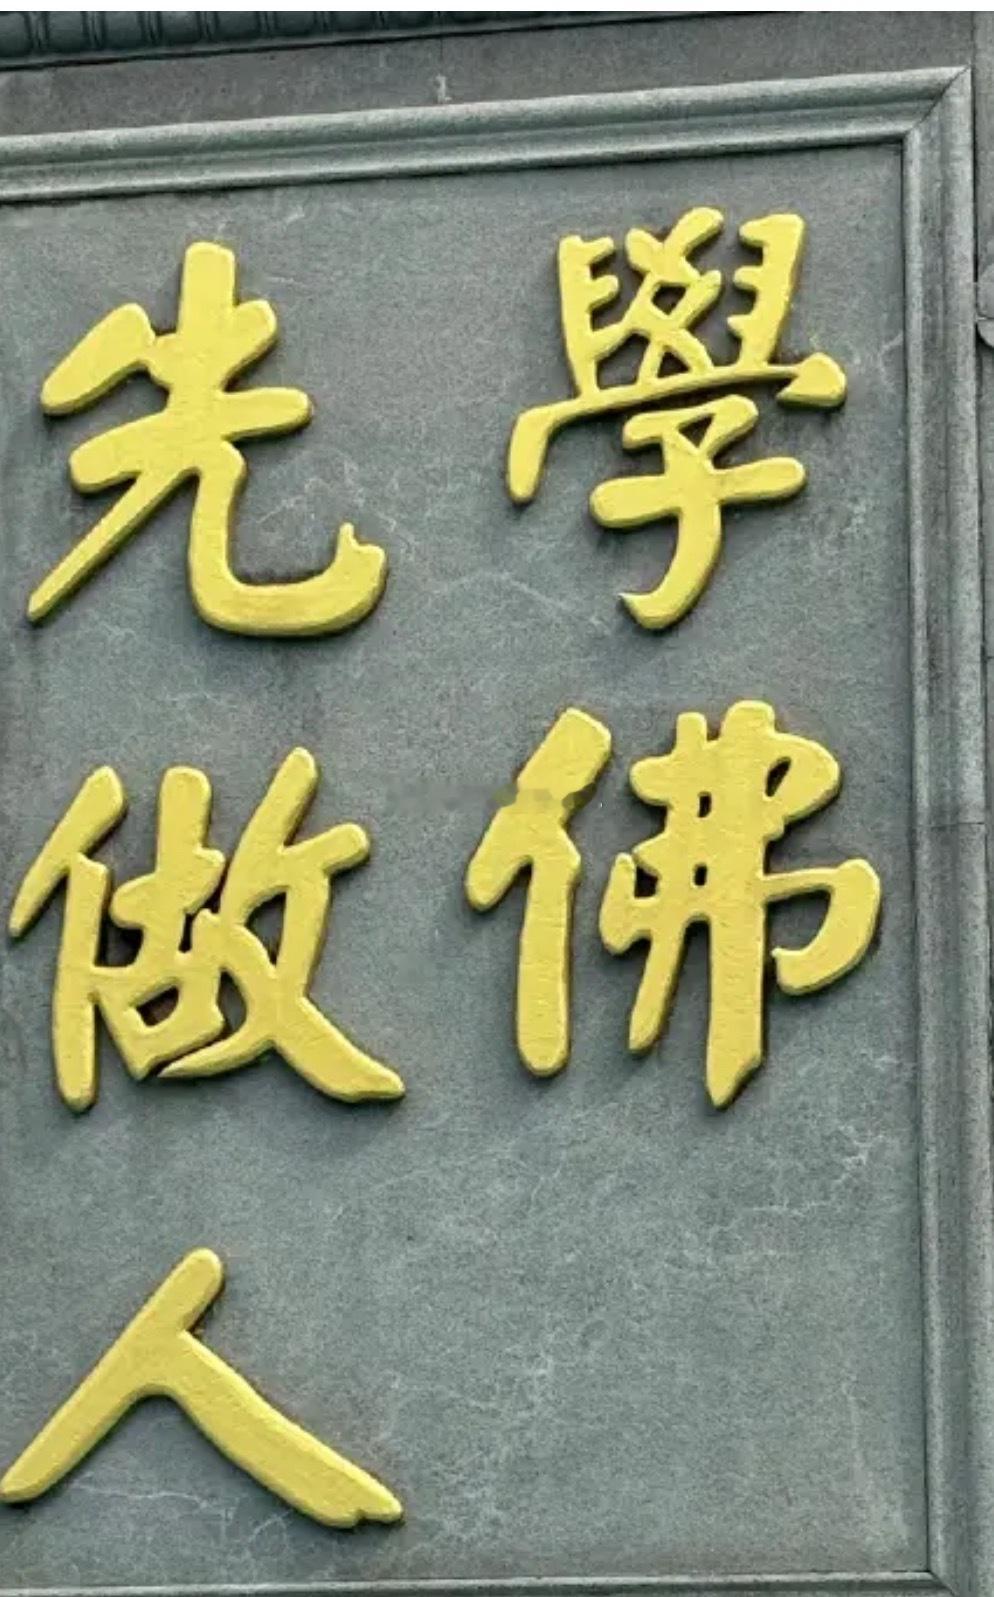 學佛
先做人